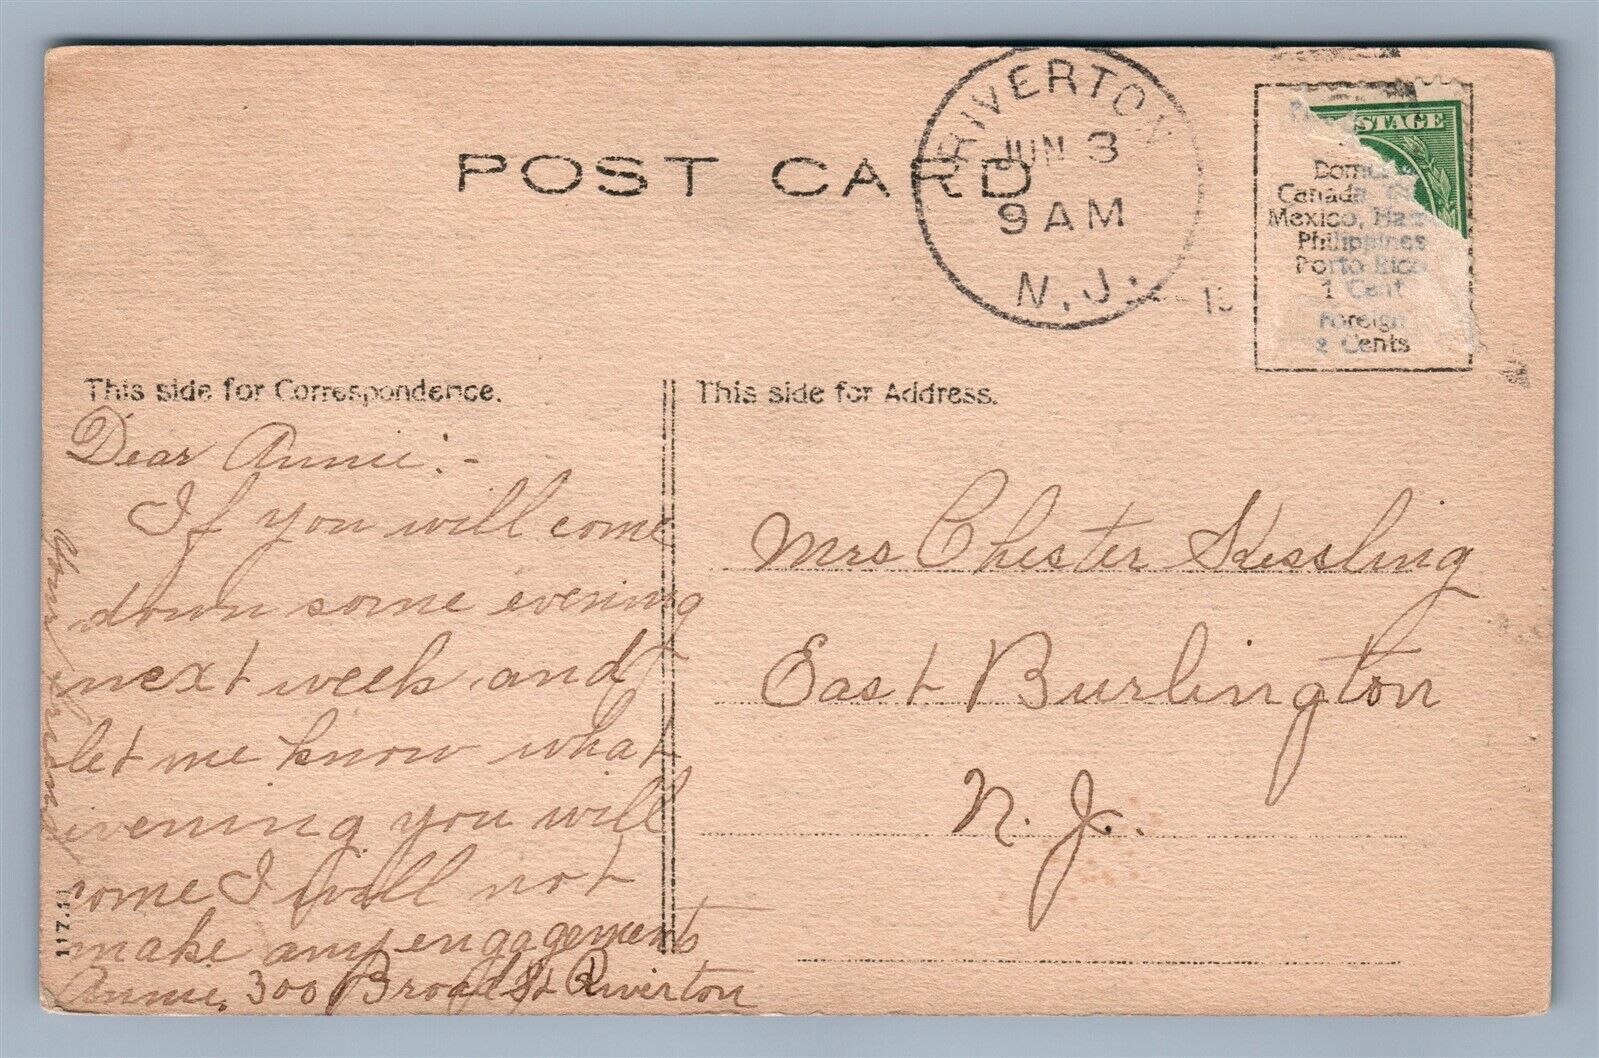 POST CARD
RIVERTON
JUN 3
9 AM
N.J.
STAGE
Canada
Mexico,
Philippines
Porto Rico
1 Cent
Foreign
2 Cents
This side for Correspondence.
This side for Address.
Dear Annie:-
If you will come
down some evening
next week and
let me know what
evening you will
come I will not
make any engagements
Annie, 300 Broad St Riverton
Your friend
117.11
Mrs Chester Kessling
East Burlington
N. J.